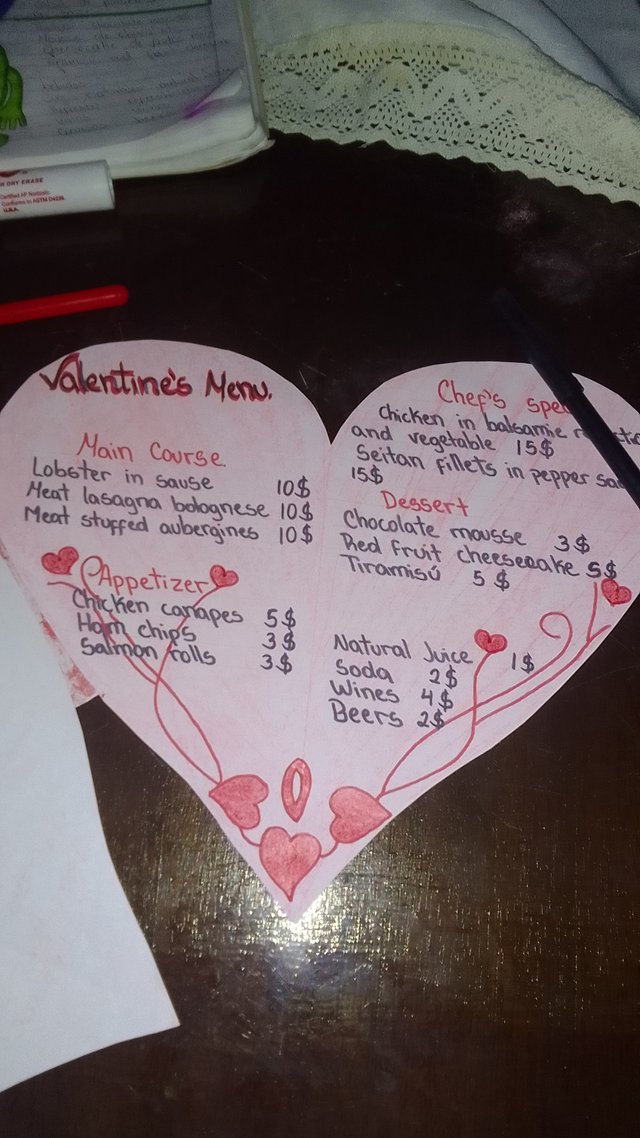 DRY ERASE
Certified AP Nontoxic
Conforms to ASTM D4236
U.S.A.
Valentine's Menu.
Main Course
Lobster in sause 10$
Meat lasagna bolognese 10$
Meat stuffed aubergines 10$
Appetizer
Chicken canapes 5$
Ham chips 3$
Salmon rolls 3$
Chef's
chicken in balsamic
and vegetable 15$
Seitan fillets in pepper
15$
Dessert
Chocolate mousse 3$
Red fruit cheesecake 5$
Tiramisú 5$
Natural Juice 1$
Soda 2$
Wines 4$
Beers 2$